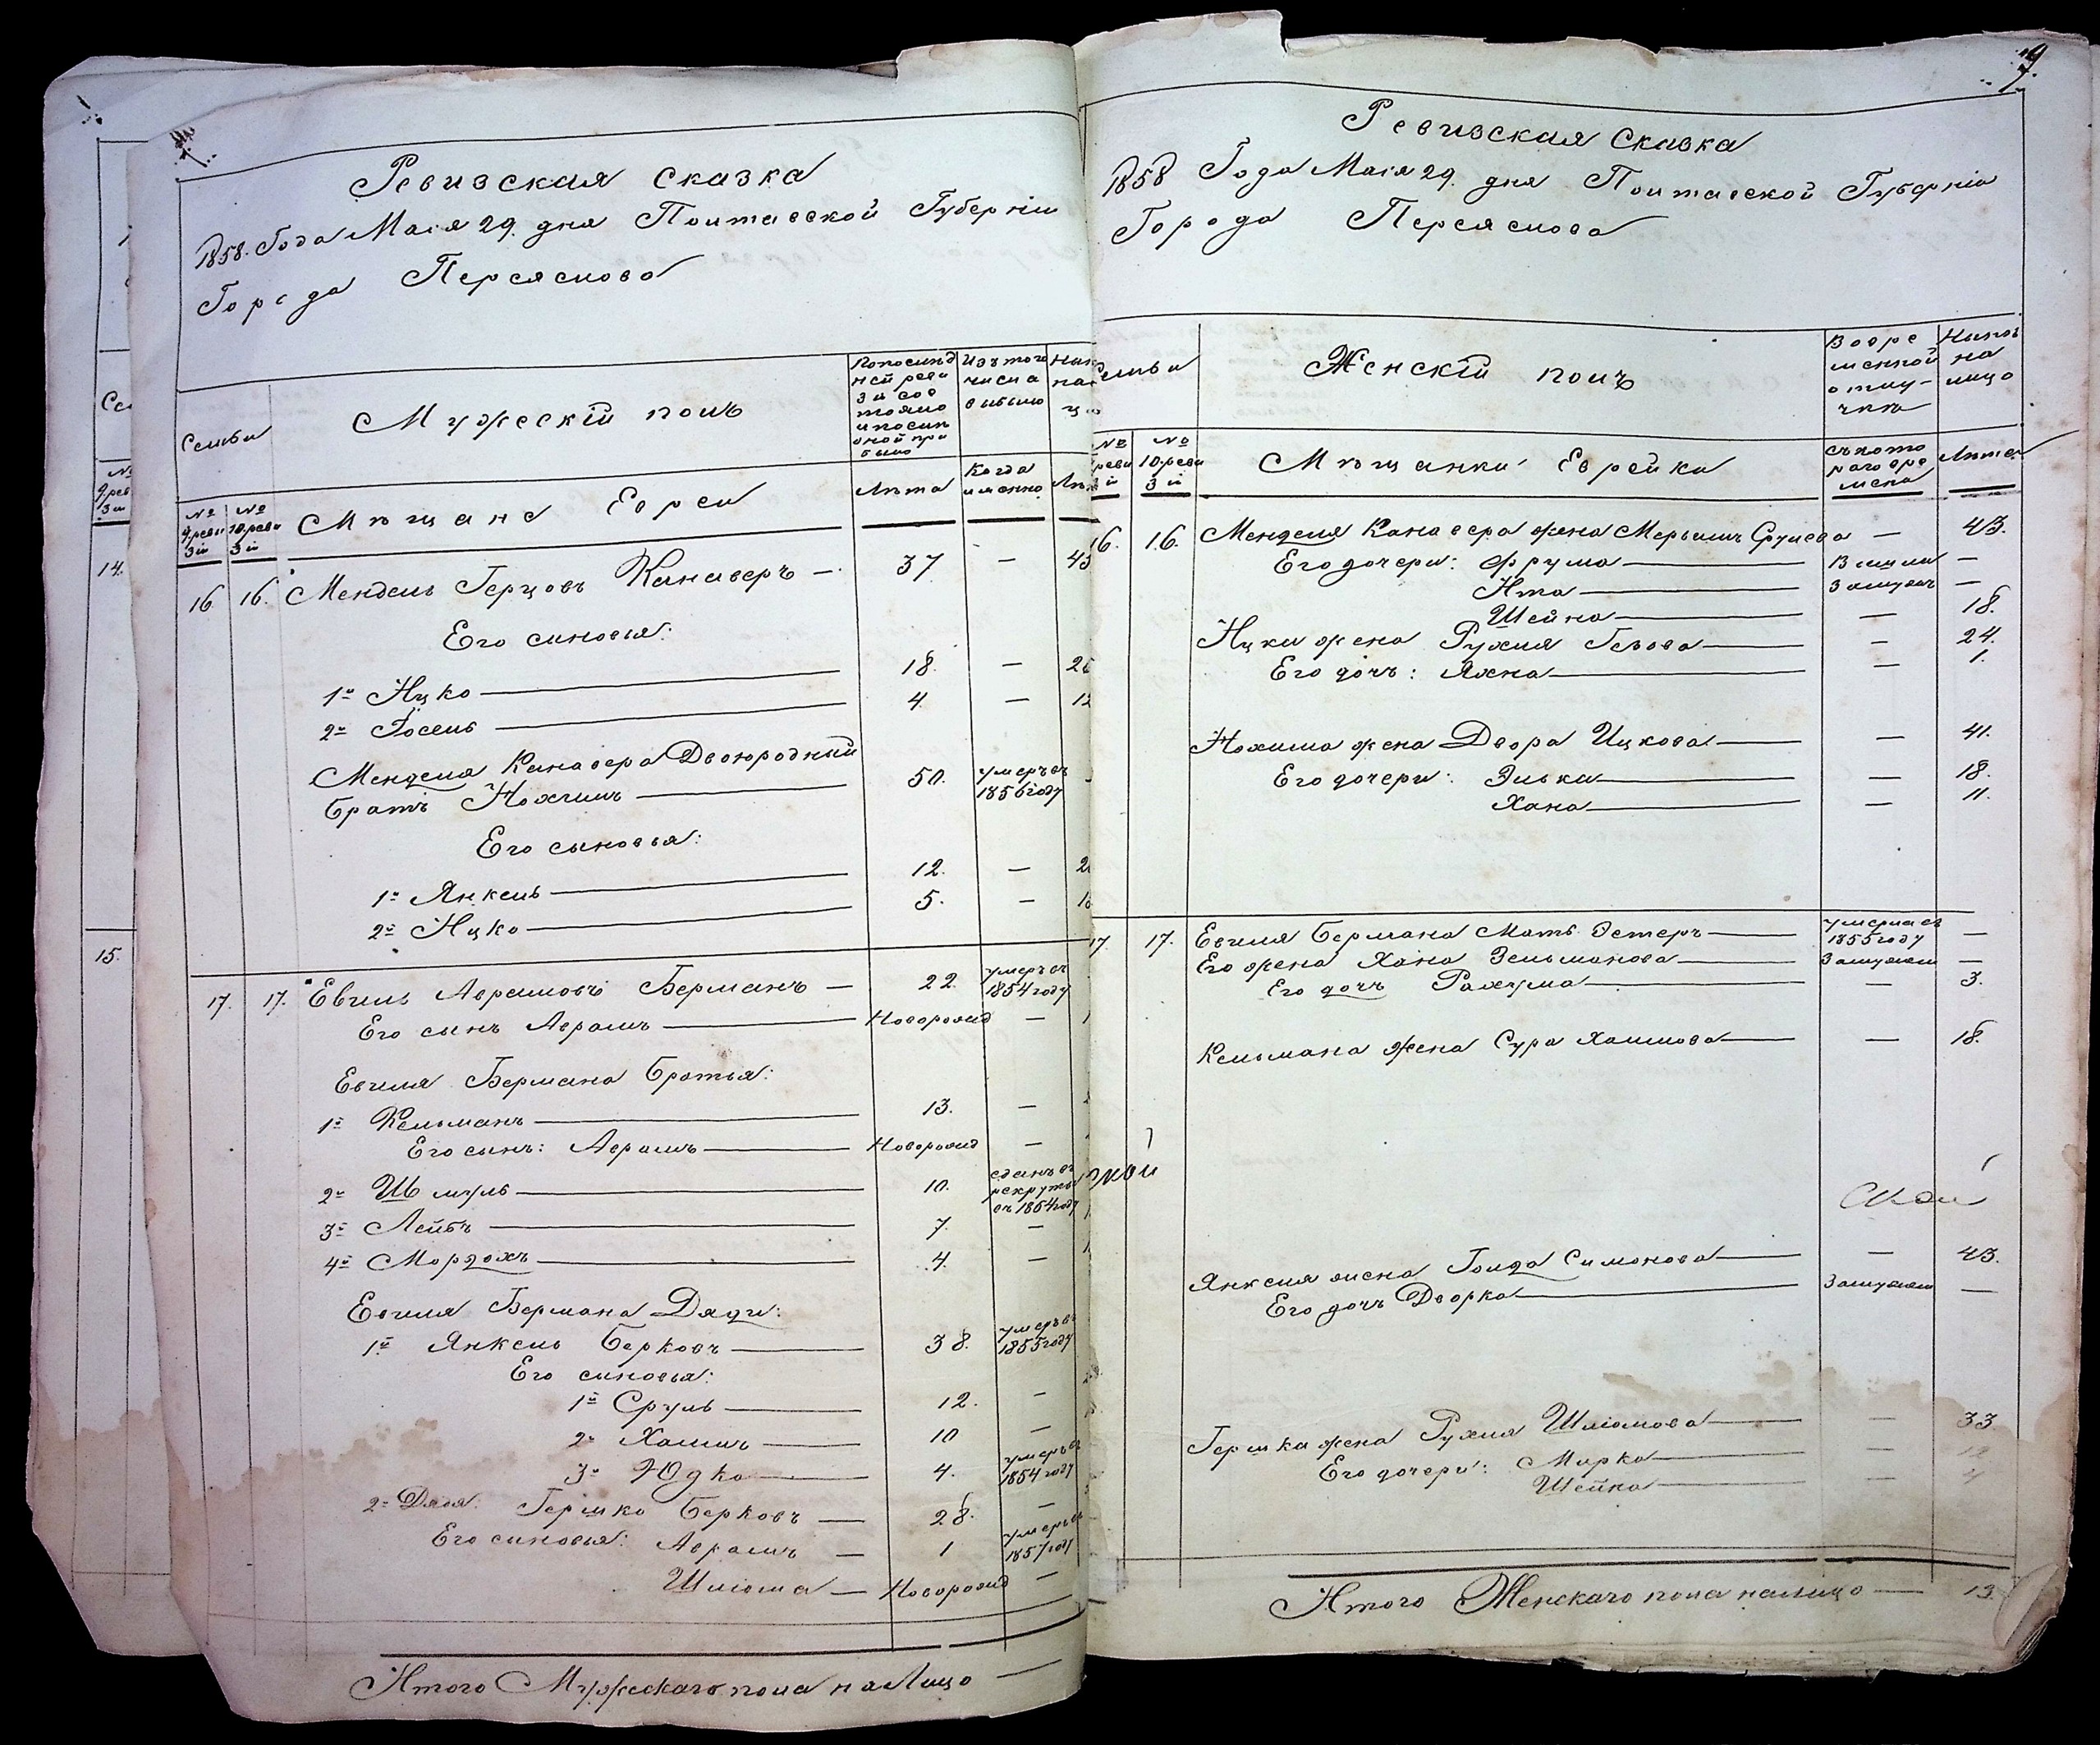 Ревизская сказка
1858. Года Маія 29. дня Полтавской Губерніи
Города Переяслова
Семьи
Мужескій полъ
По послѣд
ней реви
зіи сос
тояло
и послѣ
оной при
было
Изъ того
числа
выбыло
№
9 реви
зіи
№
10 реви
зіи
Мѣщане Евреи
Лѣта
Когда
именно
16 16. Мендель Герцовъ Канаверъ — 37 — 45
Его сыновья:
1й Ицко — 18. — 26
2й Іосель — 4 — 12
Менделя Канавера Двоюродный
братъ Нохимъ — 50. умеръ въ
1856 году
Его сыновья:
1й Янкель — 12. — 20
2й Ицко — 5. —
17. 17. Евзель Аврамовъ Берманъ — 22. умеръ въ
1854 году
Его сынъ Аврамъ — Новорожд —
Евзеля Бермана братья:
1й Кельманъ — 13. —
Его сынъ: Аврамъ — Новорожд —
2й Шмуль — 10. сданъ въ
рекруты
въ 1854 году
3й Лейбъ — 7. —
4й Мордохъ — 4. —
Евзеля Бермана Дяди:
1й Янкель Берковъ — 38. умеръ въ
1855 году
Его сыновья:
1й Сруль — 12. —
2й Хаимъ — 10 —
3й Юдко — 4. умеръ въ
1854 году
2й Дядя: Гершко Берковъ — 28. —
Его сыновья: Аврамъ — 1 умеръ въ
1857 году
Шліома — Новорожд —
Итого Мужескаго пола на Лицо —
Ревизская Сказка
1858 Года Маія 29. дня Полтавской Губерніи
Города Переяслова
Семьи
Женскій полъ
Во вре
менной
отлу-
чкѣ
Нынѣ
на
лицо
№
10 реви
зіи
Мѣщанки Еврейки
Съ кото
раго вре
мени
Лѣта
16. 16. Менделя Канавера жена Мерьямъ Срулева — 43.
Его дочери: Фрума — Взамуж —
Ита — Замужем —
Шейна — — 18.
Ицки жена Рухля Гевова — — 24.
Его дочь: Яхна — — 1.
Нохима жена Двора Ицкова — — 41.
Его дочери: Элька — — 18.
Хана — — 11.
17. 17. Евзеля Бермана Мать Эстеръ — умерла въ
1855 году —
Его жена Хана Зельманова — Замужем —
Его дочь Рахума — — 3.
Кельмана жена Сура Хаимова — — 18.
Янкеля жена Голда Симонова — — 43.
Его дочь Дворка — Замужем —
Гершка жена Рухля Шліомова — — 33.
Его дочери: Мирка — —
Шейна — —
Итого Женскаго пола на лицо — 13.
14.
15.